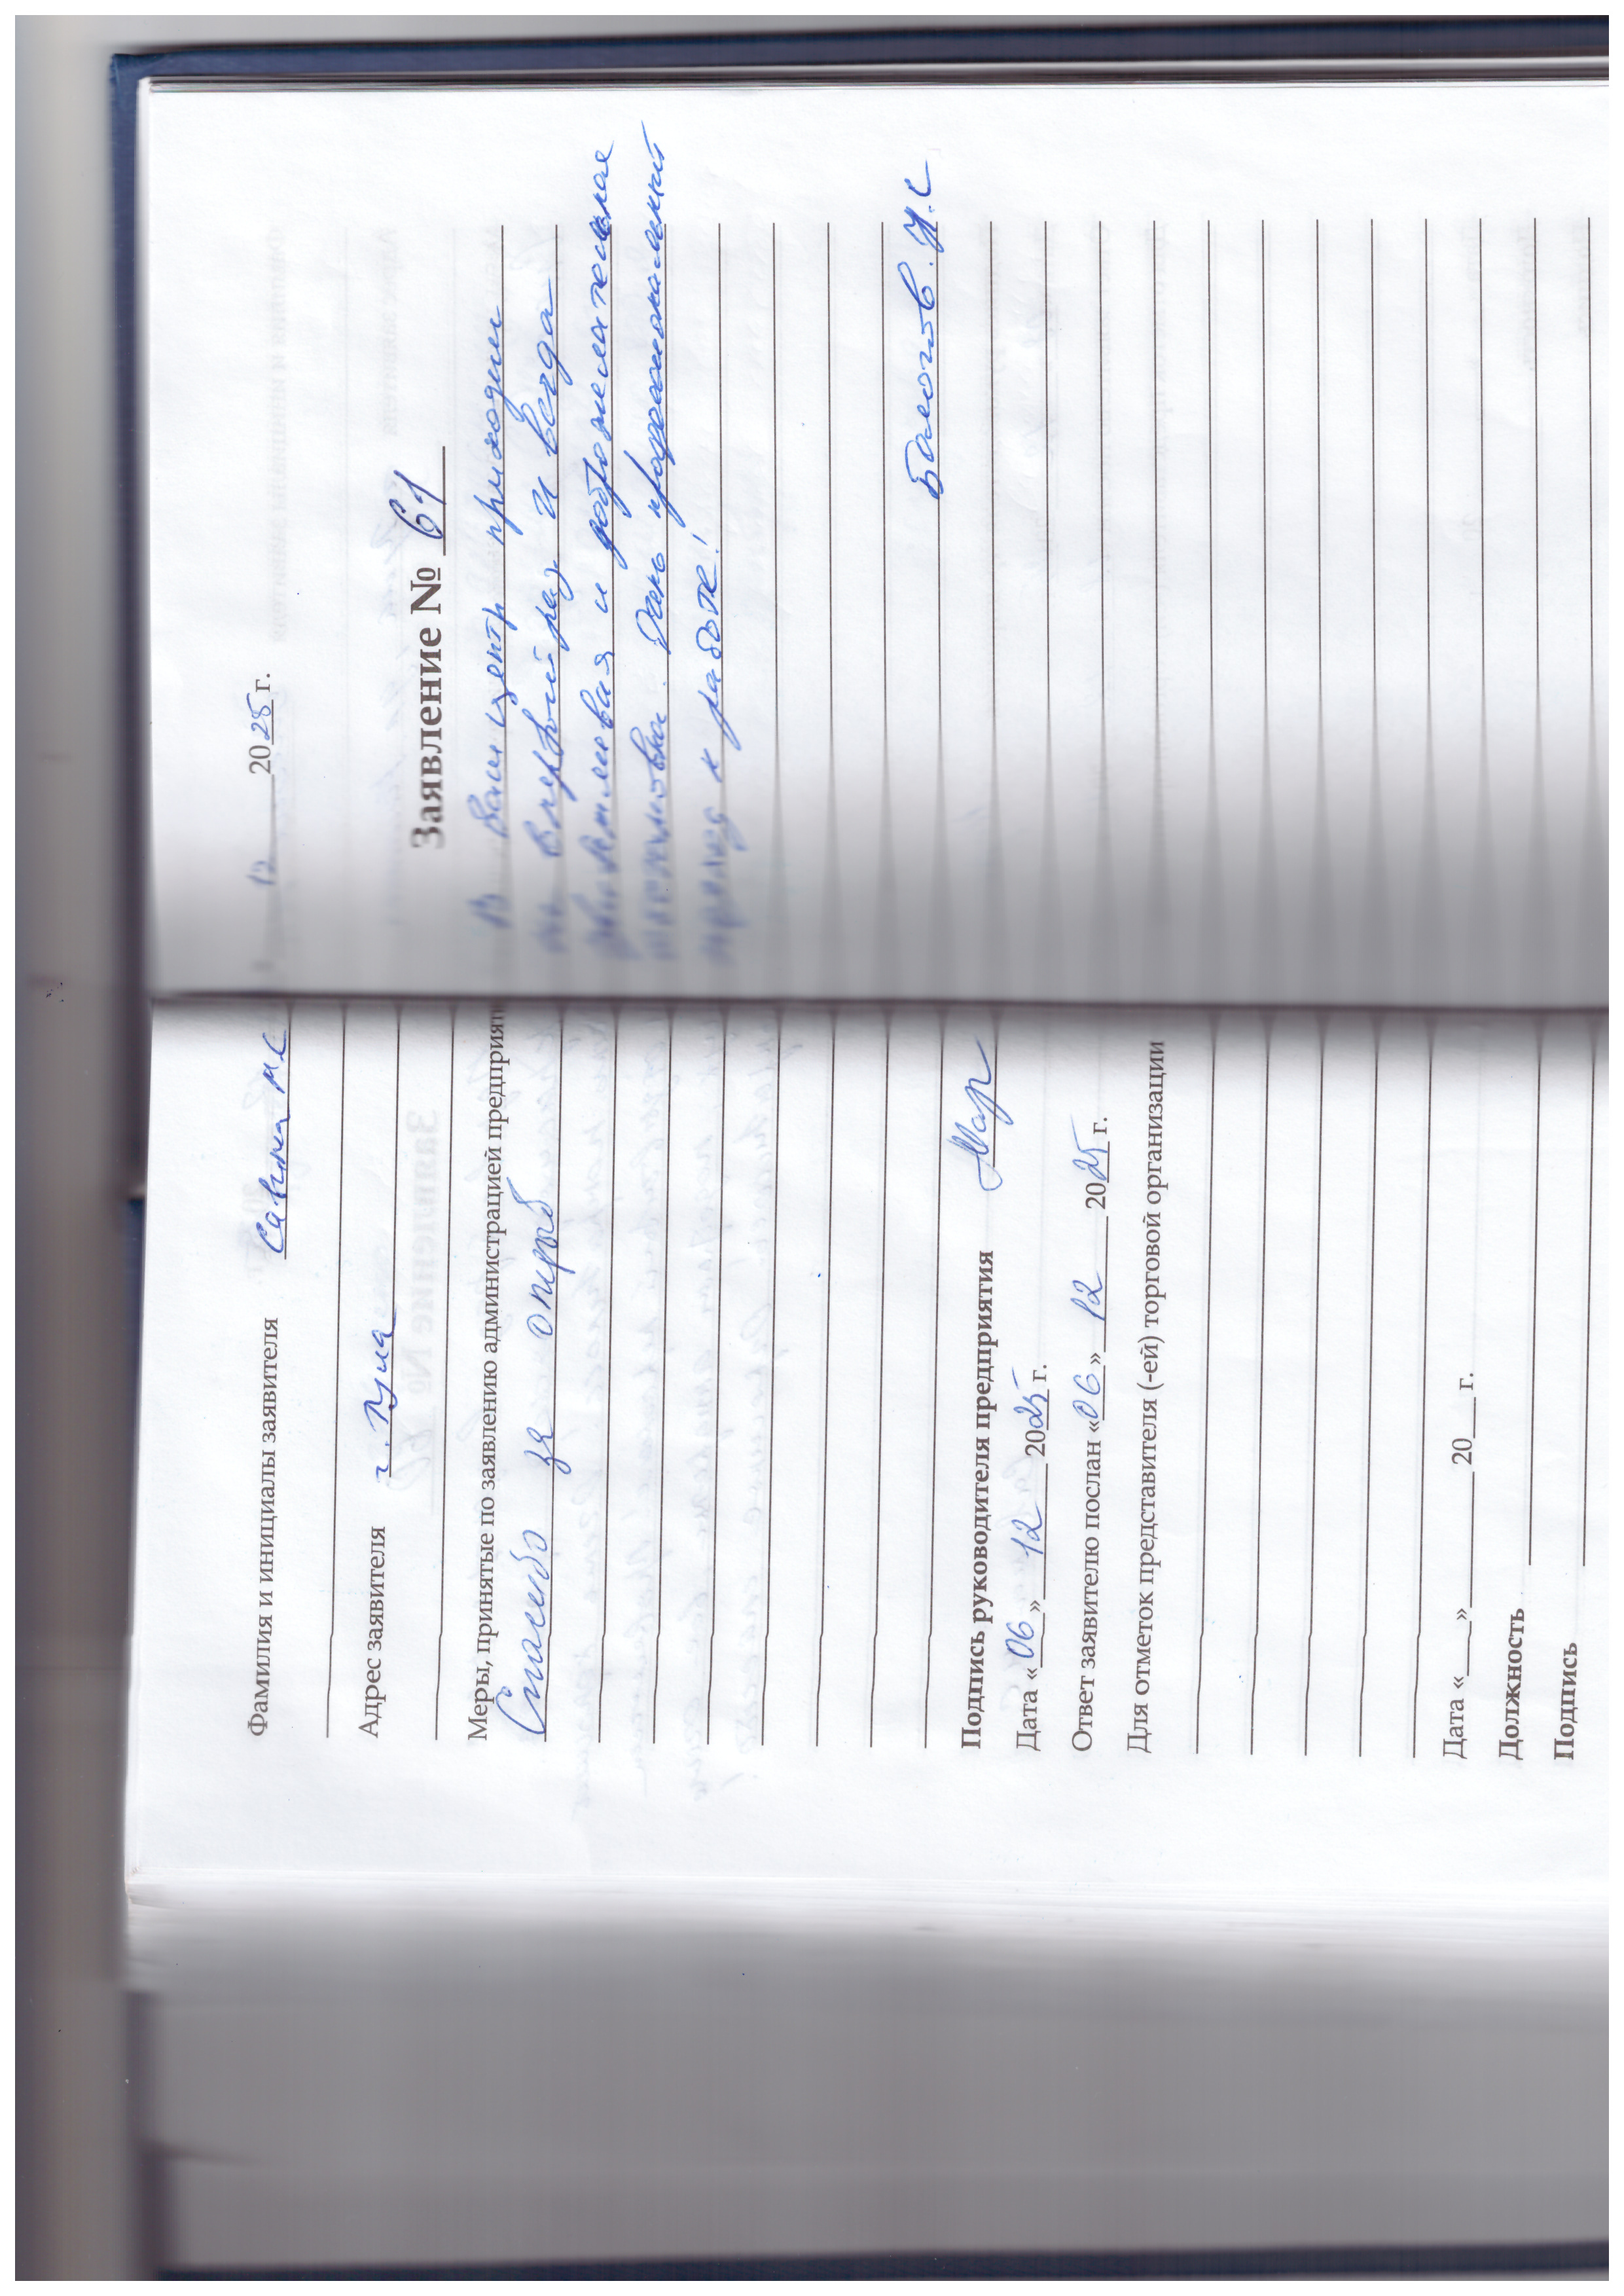 Фамилия и инициалы заявителя Савина М С
Адрес заявителя г. Тула
Меры, принятые по заявлению администрацией предприят
Спасибо за отзыв
Подпись руководителя предприятия
Дата «06» 12 2025 г.
Ответ заявителю послан «06» 12 2025 г.
Для отметок представителя (-ей) торговой организации
Дата «___» 20___ г.
Должность
Подпись
12 2025 г.
Заявление № 61
В Ваш центр приходим
не в первый раз и всегда
и доброжелательная
Дань профессиональный
подход к работе!